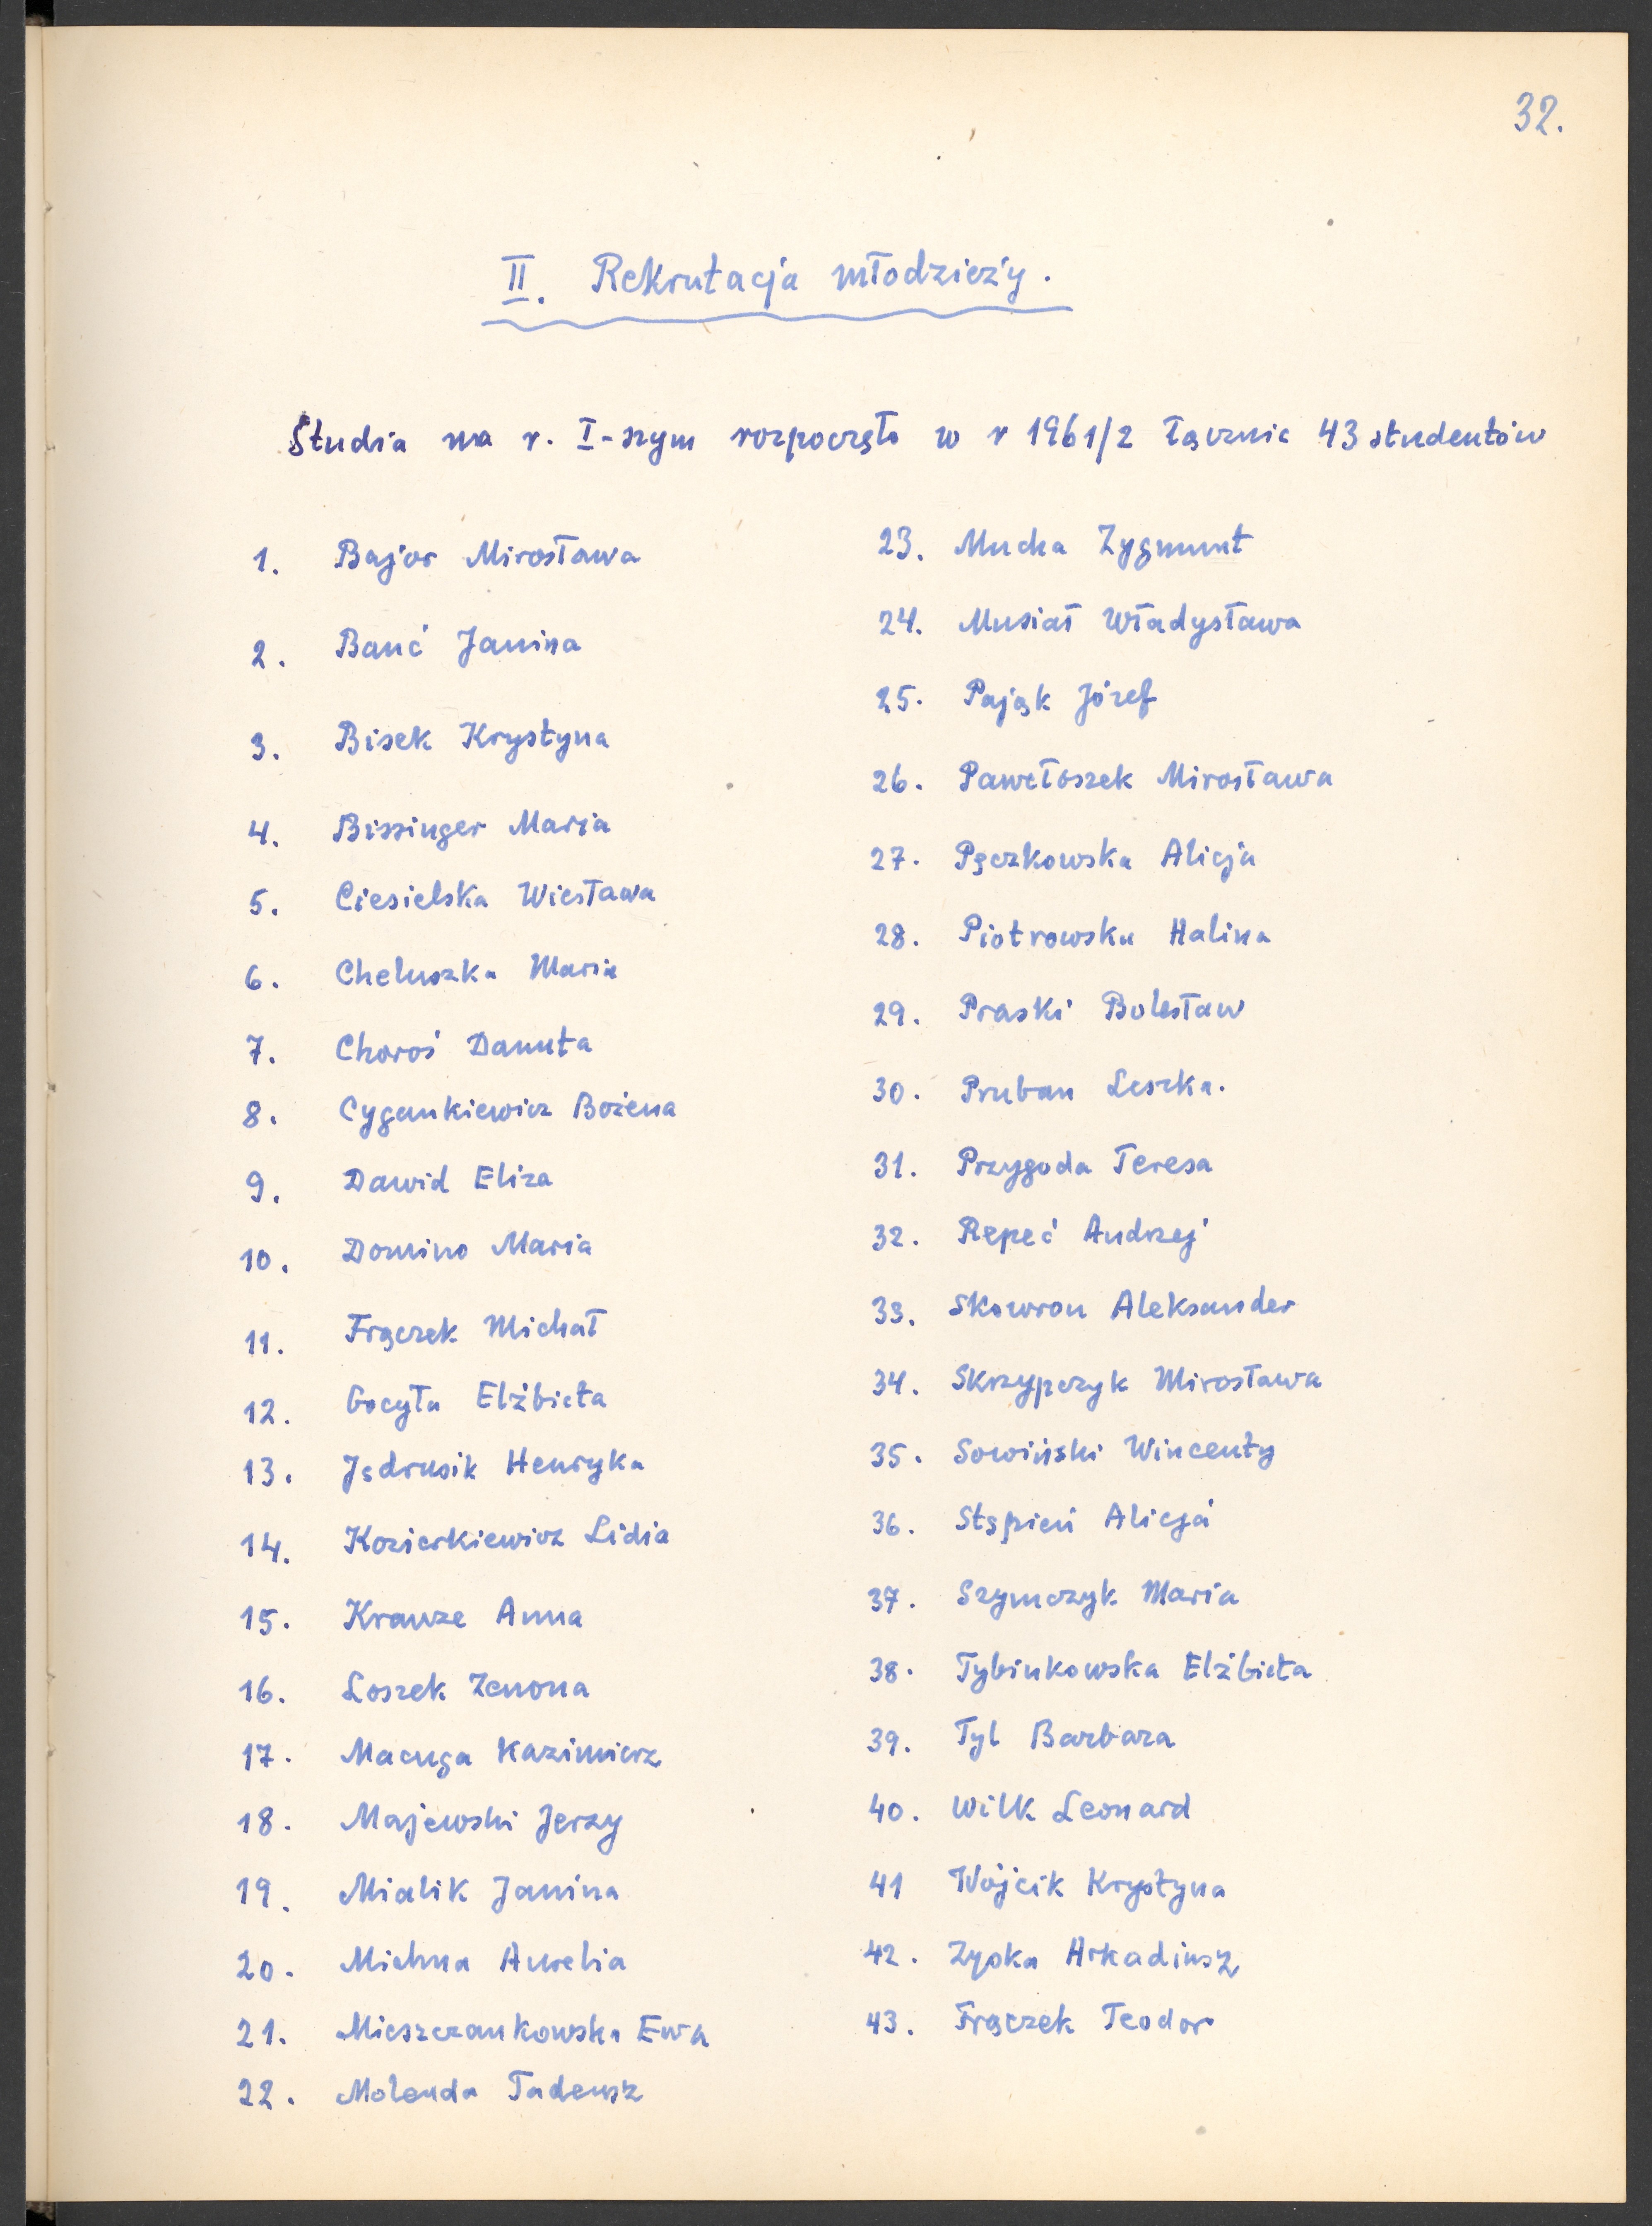 32.
II. Rekrutacja młodzieży.
Studia na r. I-szym rozpoczęło w r 1961/2 łącznie 43 studentów
1. Bajor Mirosława
2. Banć Janina
3. Bisek Krystyna
4. Bissinger Maria
5. Ciesielska Wiesława
6. Cheluszka Maria
7. Choroś Danuta
8. Cygankiewicz Bożena
9. Dawid Eliza
10. Domino Maria
11. Frączek Michał
12. Gocyła Elżbieta
13. Jędrusik Henryka
14. Kozierkiewicz Lidia
15. Krauze Anna
16. Loszek Zenona
17. Macuga Kazimierz
18. Majewski Jerzy
19. Mialik Janina
20. Michna Aurelia
21. Mieszczankowska Ewa
22. Molenda Tadeusz
23. Mucha Zygmunt
24. Musiał Władysława
25. Pająk Józef
26. Pawełoszek Mirosława
27. Pączkowska Alicja
28. Piotrowska Halina
29. Praski Bolesław
30. Pruban Leszka.
31. Przygoda Teresa
32. Repeć Andrzej
33. Skowron Aleksander
34. Skrzypczyk Mirosława
35. Sowiński Wincenty
36. Stępień Alicja
37. Szymczyk Maria
38. Tybinkowska Elżbieta
39. Tyl Barbara
40. Wilk Leonard
41 Wójcik Krystyna
42. Zyska Arkadiusz
43. Frączek Teodor